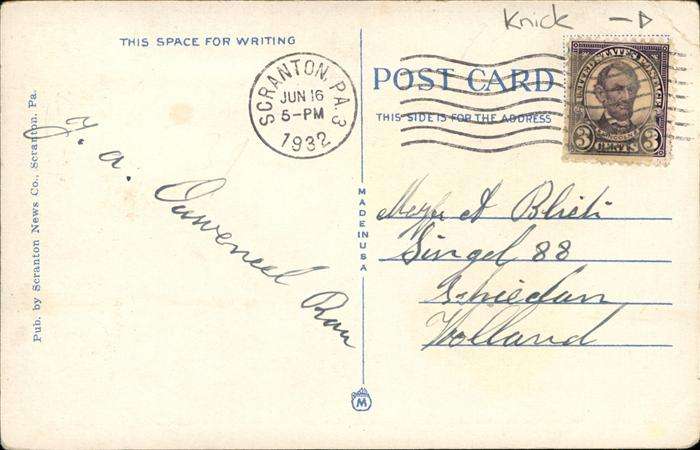 Knick
THIS SPACE FOR WRITING
SCRANTON, PA. 3
JUN 16
5-PM
1932
POST CARD
THIS SIDE IS FOR THE ADDRESS
UNITED STATES POSTAGE
LINCOLN
3 CENTS 3
Pub. by Scranton News Co., Scranton, Pa.
MADE IN USA
A
Singel 88
Schiedam
Holland
M